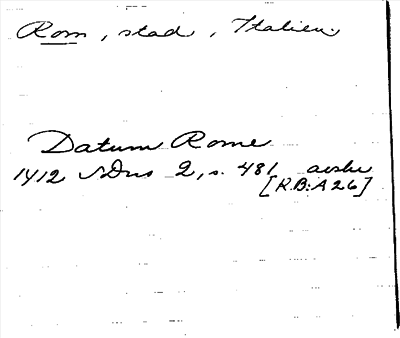 Rom, stad, Italien.
Datum Rome
1412 SDns 2, s. 481 avskr
[K.B:A26]